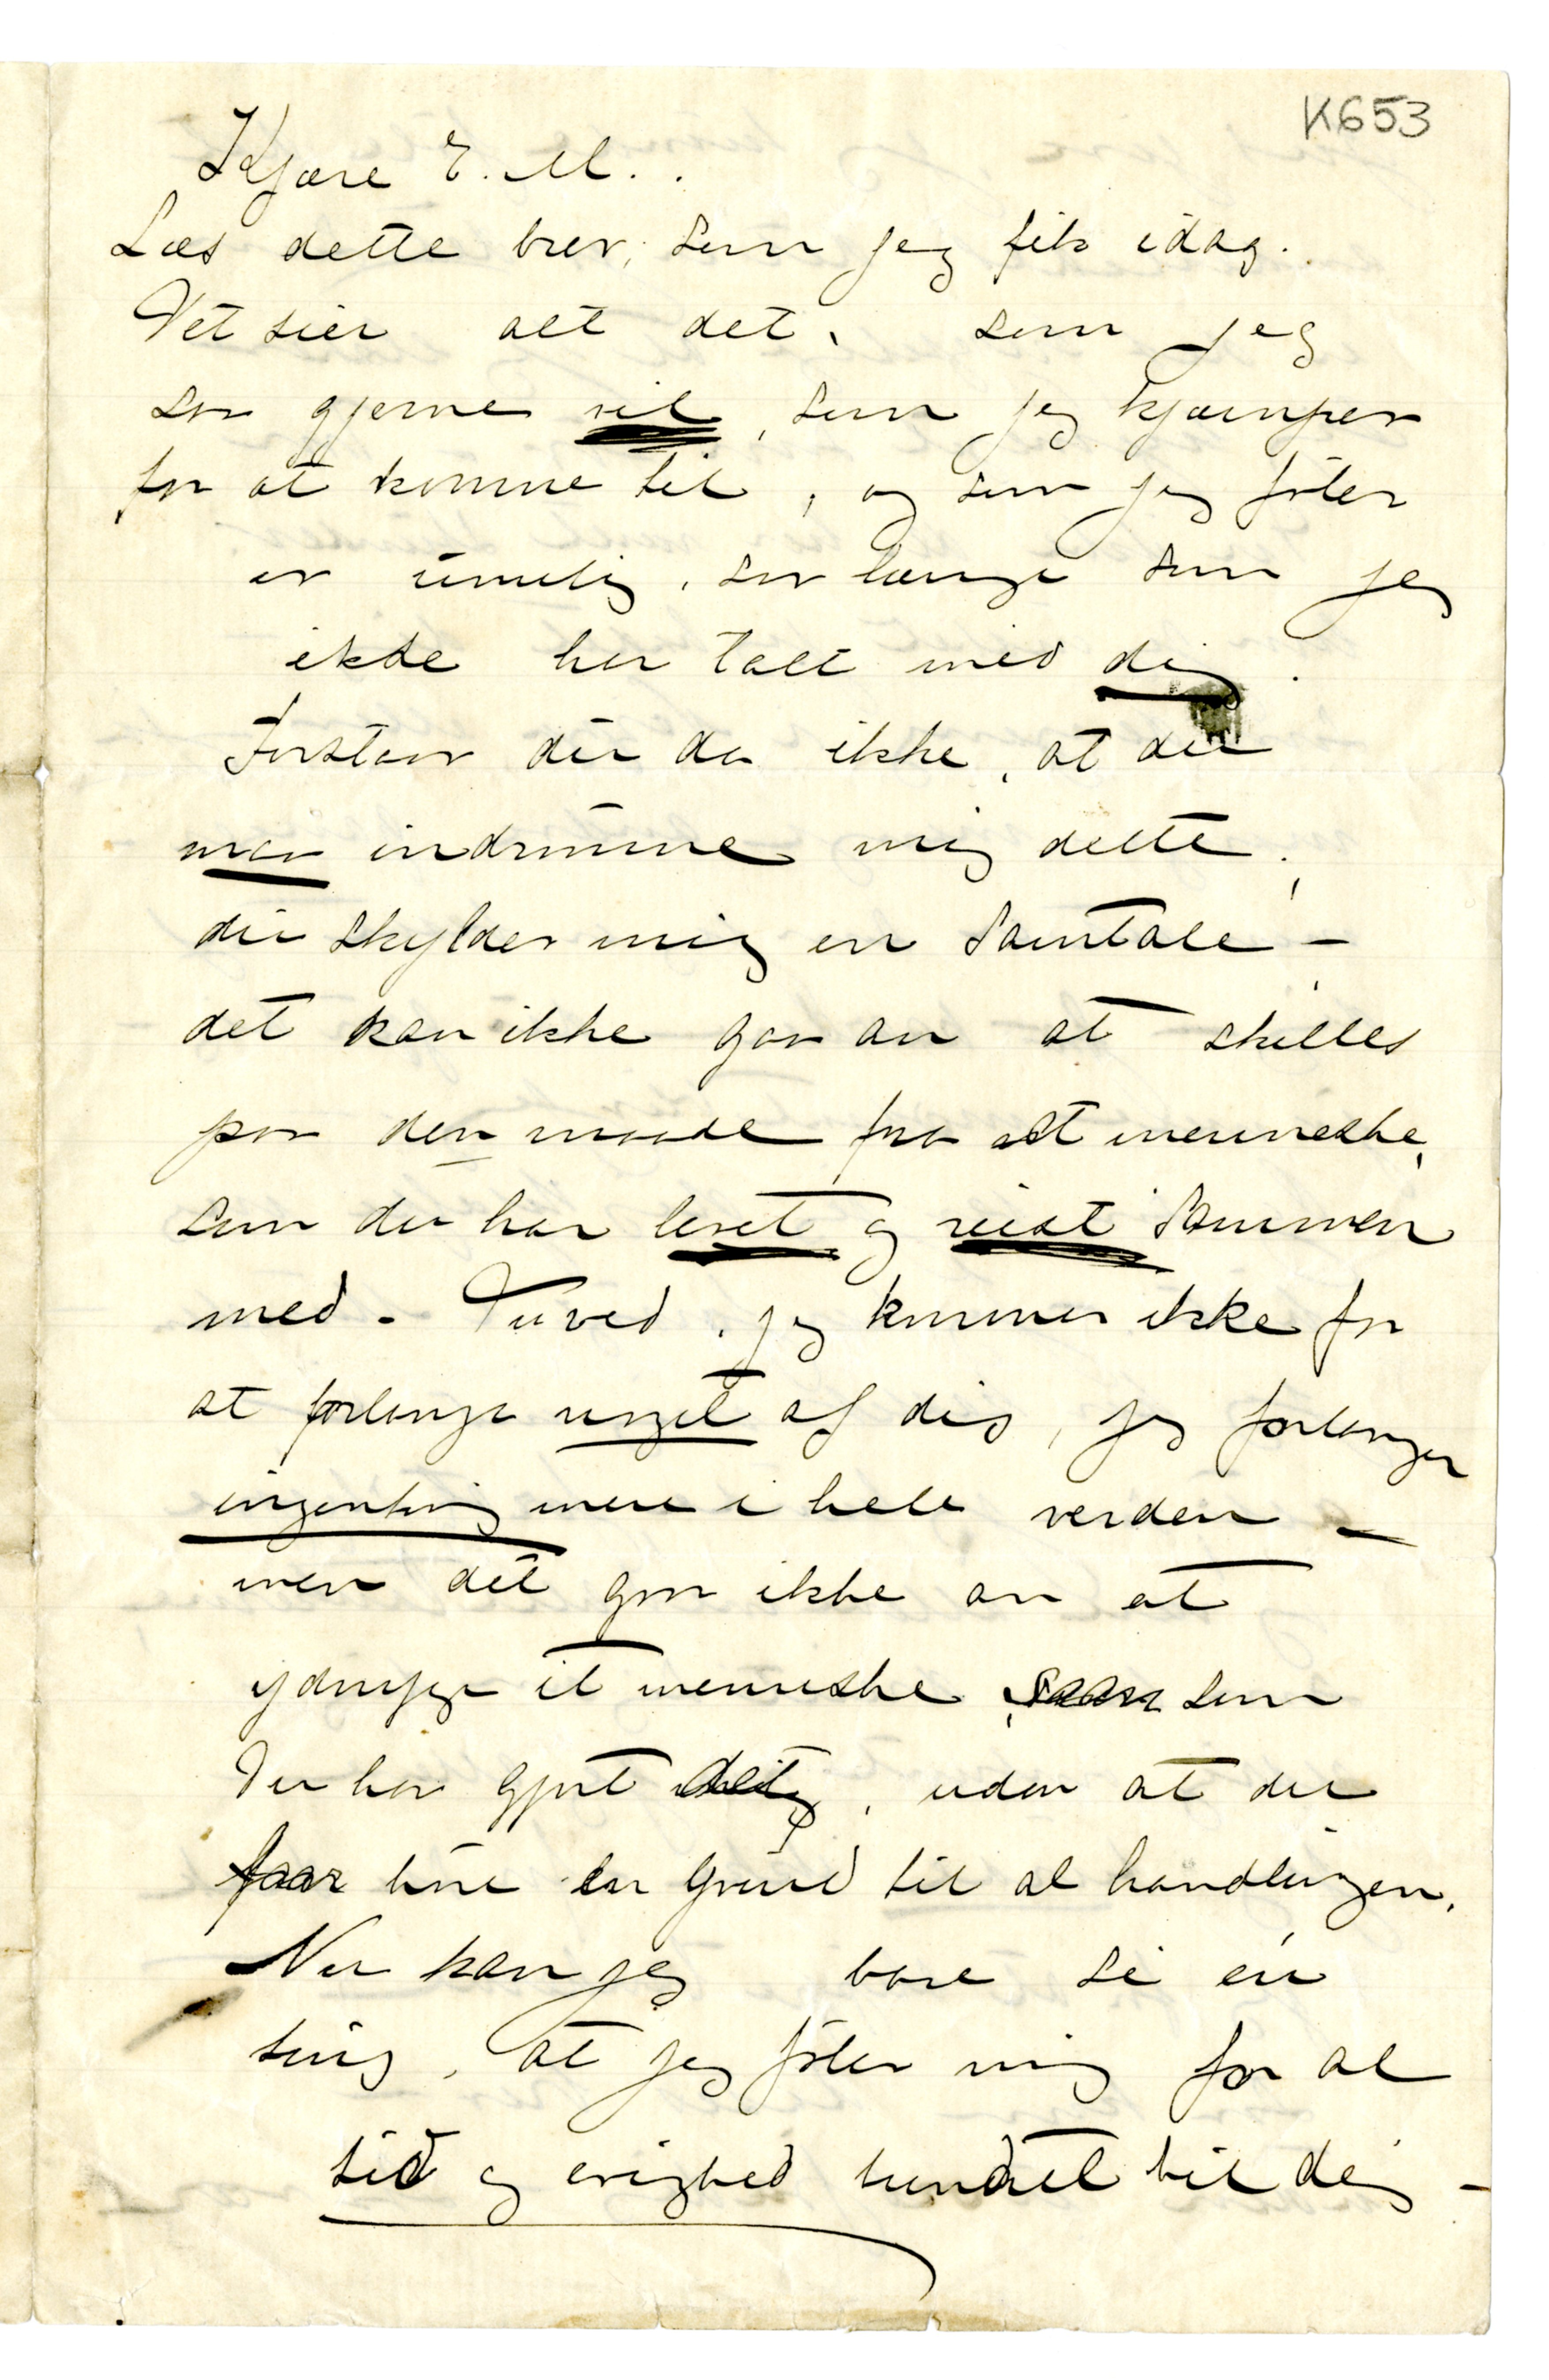 K653
Kjære E. M..
Læs dette brev, som jeg fik idag.
Det sier alt det, som jeg
saa gjerne vil, som jeg kjæmper
for at komme til, og som jeg føler
er umulig, saa længe som jeg
ikke har talt med dig.
Forstaar du da ikke, at du
maa indrømme mig dette,
du skylder mig en Samtale –
det kan ikke gaa an at skilles
paa den maade fra et menneske,
som du har levet og reist sammen
med. – Du ved, jeg kommer ikke for
at forlange noget af dig, jeg forlanger
ingenting mere i hele verden –
men det gaar ikke an at
ydmyge et menneske, som
Du har gjort det, uden at du
faar høre en Grund til al handlingen.
Nu kan jeg bare si én
ting, at jeg føler mig for al
tid og evighed bundet til dig –